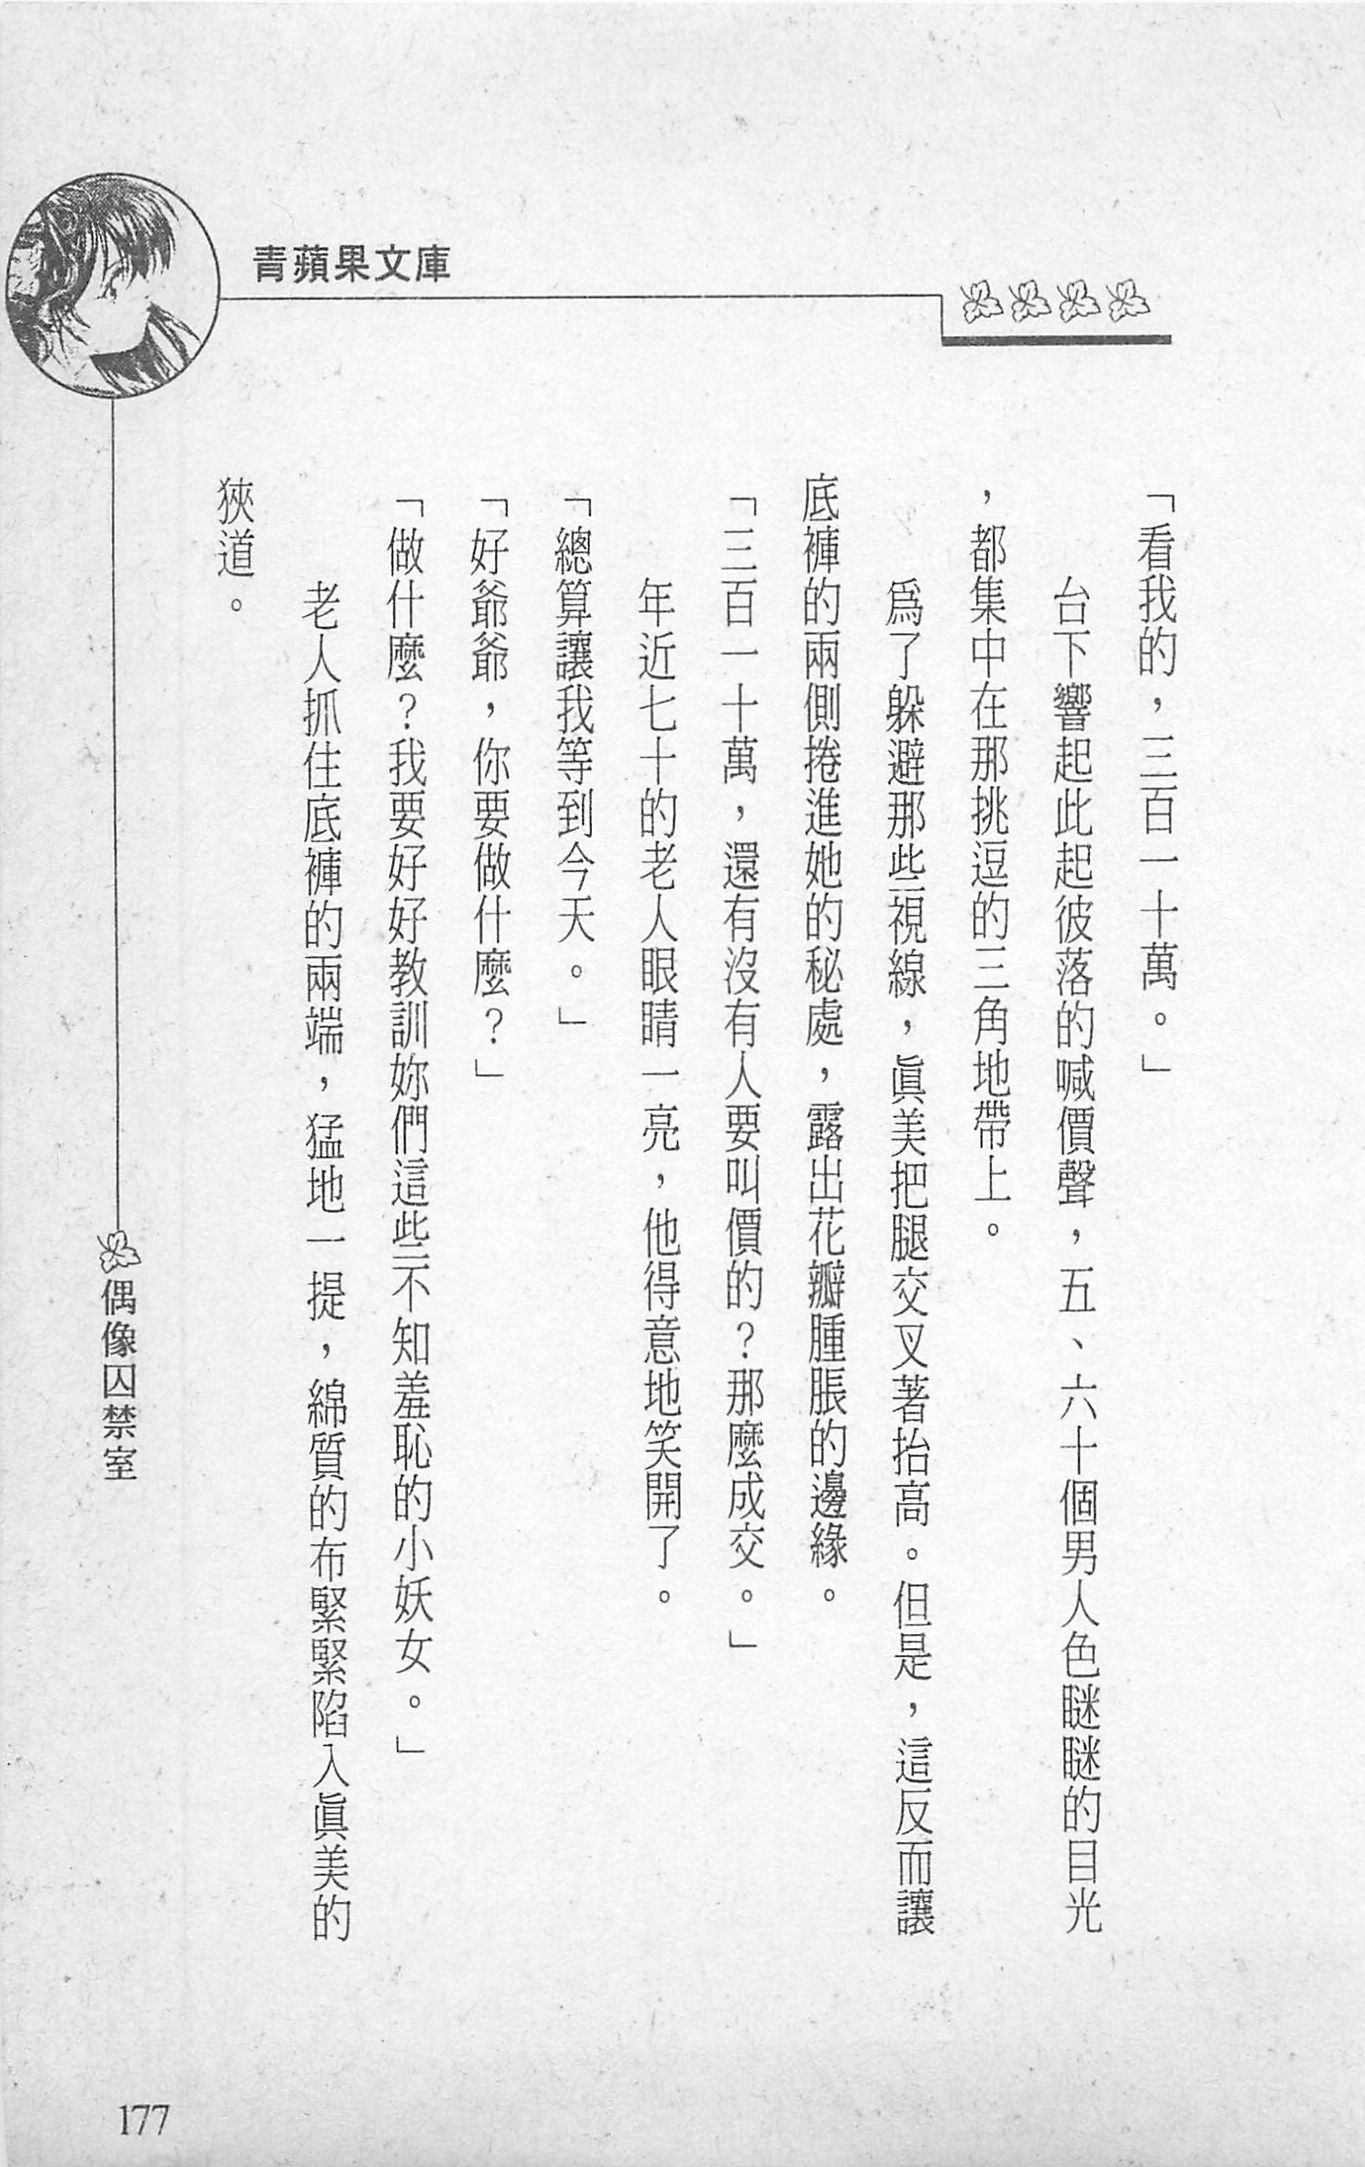 青蘋果文庫
「看我的，三百一十萬。」
台下響起此起彼落的喊價聲，五、六十個男人色瞇瞇的目光
，都集中在那挑逗的三角地帶上。
爲了躲避那些視線，眞美把腿交叉著抬高。但是，這反而讓
底褲的兩側捲進她的秘處，露出花瓣腫脹的邊緣。
「三百一十萬，還有沒有人要叫價的？那麼成交。」
年近七十的老人眼睛一亮，他得意地笑開了。
「總算讓我等到今天。」
「好爺爺，你要做什麼？」
「做什麼？我要好好教訓妳們這些不知羞恥的小妖女。」
老人抓住底褲的兩端，猛地一提，綿質的布緊緊陷入眞美的
狹道。
偶像囚禁室
177